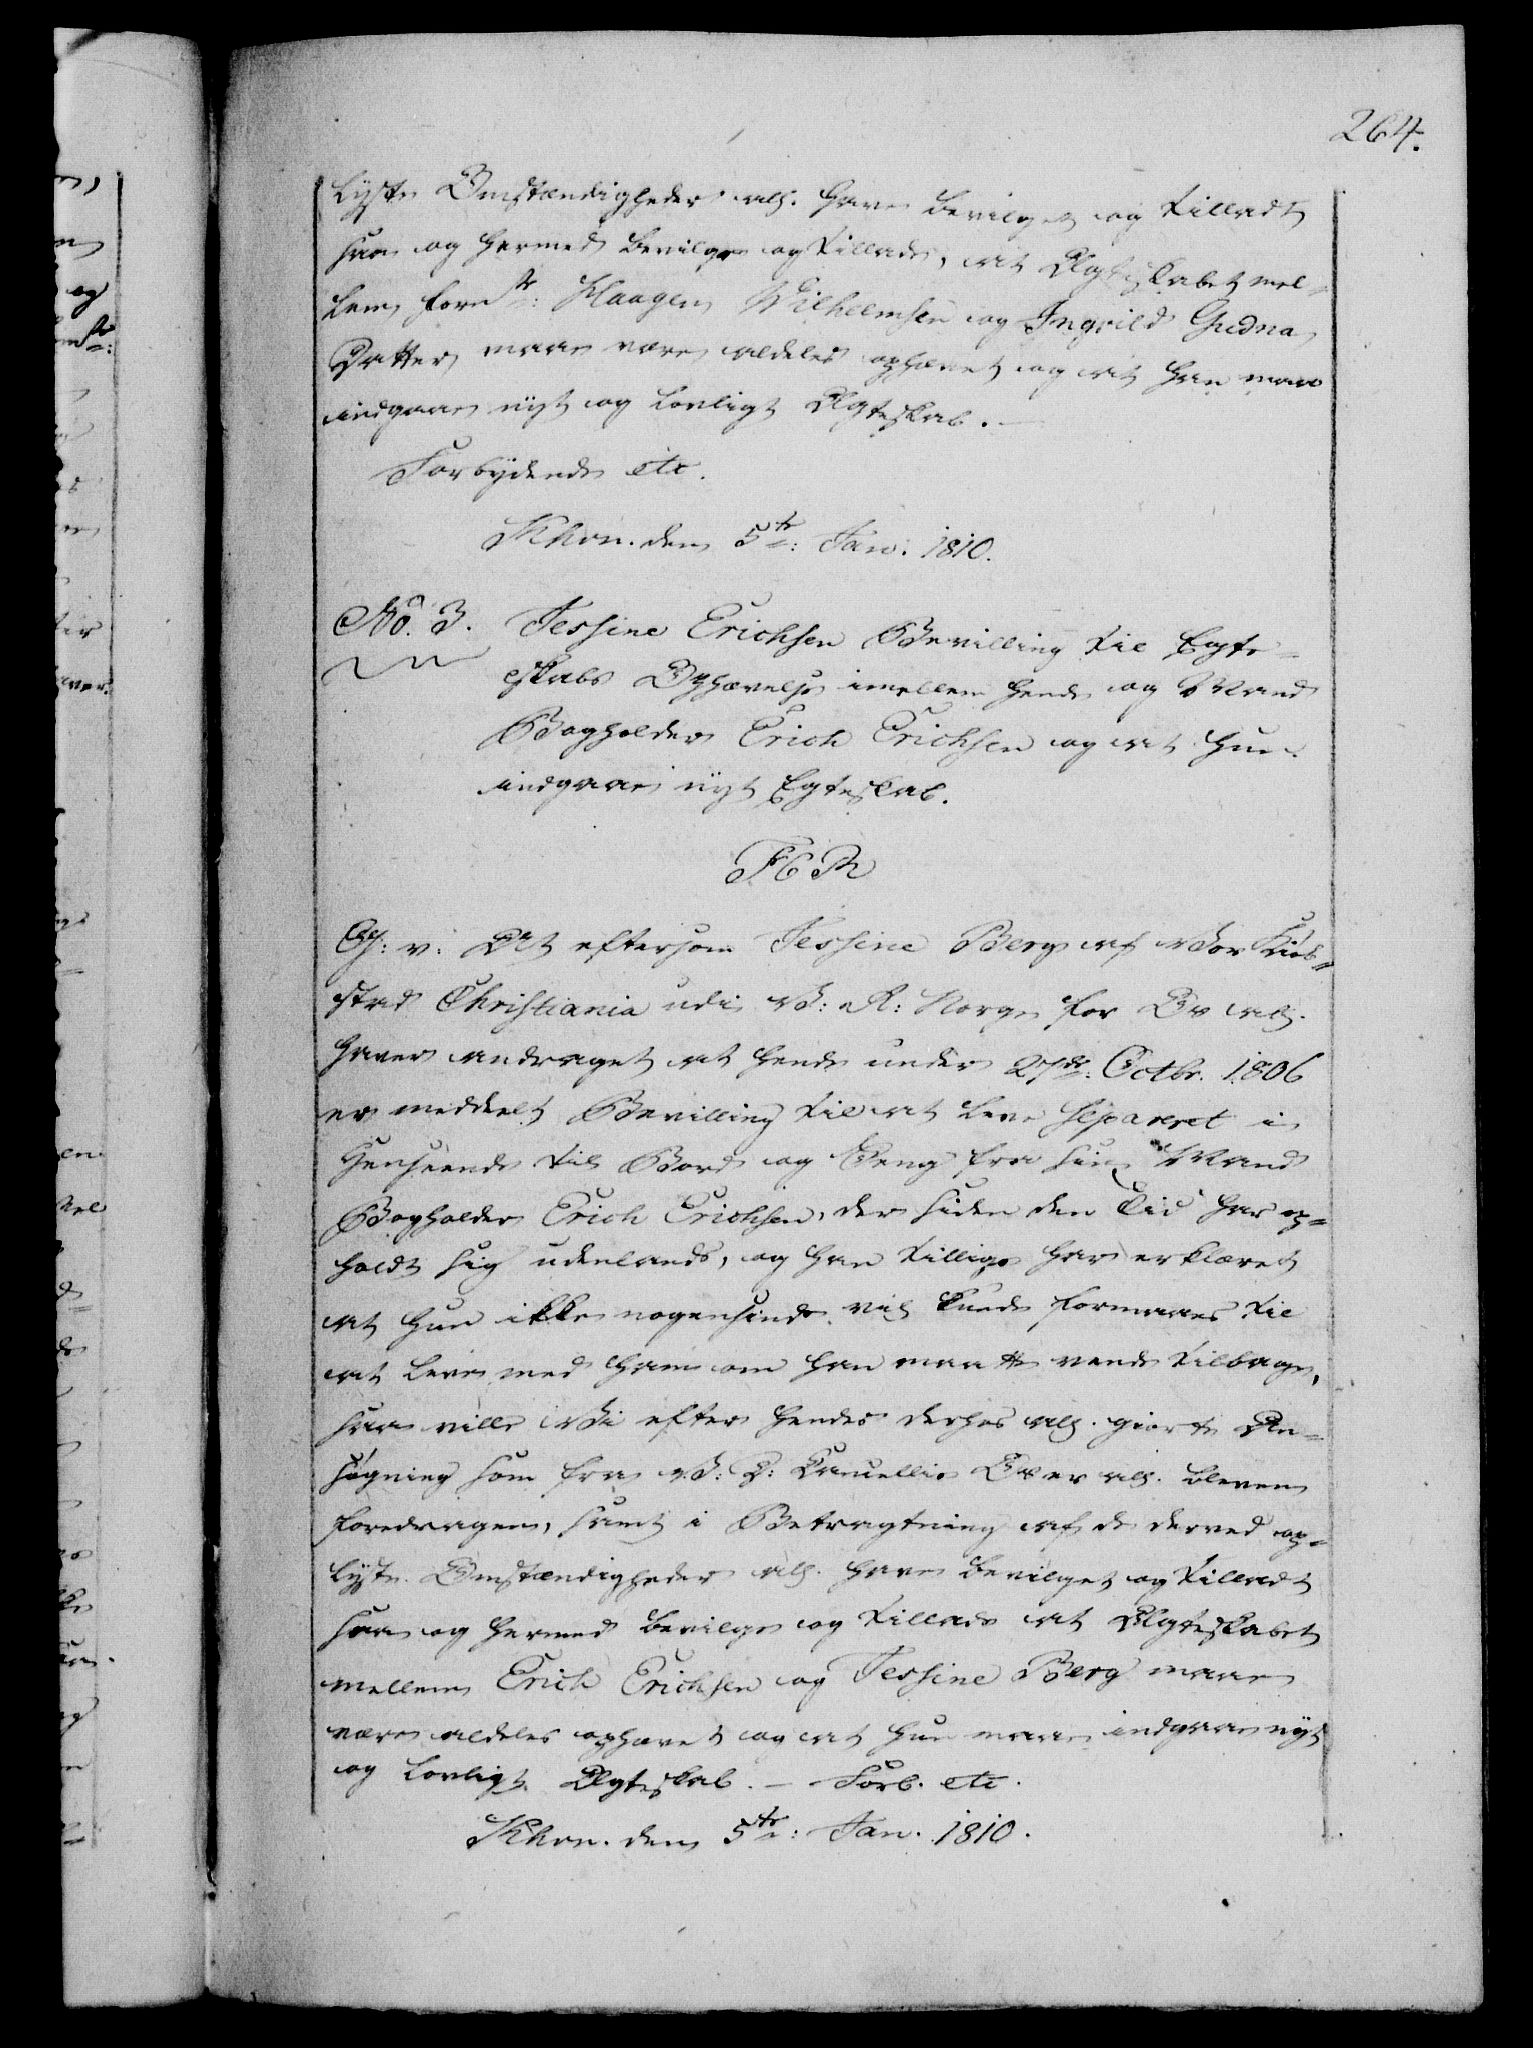 264.
lyste Omstændigheder allf. have bevilget og tilladt
saa og hermed bevilge og tillade, at Ægteskabet mel=
lem fornte: Haagen Wilhelmsen og Ingrild Gudna
Datter maae være aldeles ophævet og at han maae
indgaae nyt og lovligt Ægteskab. —
Forbydende etc.
Khvn. den 5te: Jan. 1810.
No. 3. Jessine Erichsen Bevilling til Egte=
skabs Ophævelse imellem hende og Mand
Bogholder Erich Erichsen og at hun
indgaaer nyt Egteskab.
F 6 R
G: v: At eftersom Jessine Berg af vor Kiöb=
stad Christiania udi v: R: Norge for Os allf.
haver andraget at hende under 27de: Octbr. 1806
er meddeelt Bevilling til at leve separeret i
Henseende til Bord og Seng fra sin Mand
Bogholder Erich Erichsen, der siden den Tid har op=
holdt sig udenlands, og han tillige har erklæret
at hun ikke nogensinde vil kunde formaaes til
at leve med ham om han maatte vende tilbage,
saa ville Vi efter hendes derhos allf. giorte An=
søgning som fra v: D: Cancellie Os er allf. bleven
foredragen, samt i Betragtning af de derved op=
lyste Omstændigheder allf. have bevilget og tilladt
saa og hermed bevilge og tillade at Ægteskabet
mellem Erich Erichsen og Jessine Berg maae
være aldeles ophævet og at hun maae indgaae nyt
og lovligt Ægteskab. — Forb. etc.
Khvn. den 5te: Jan. 1810.